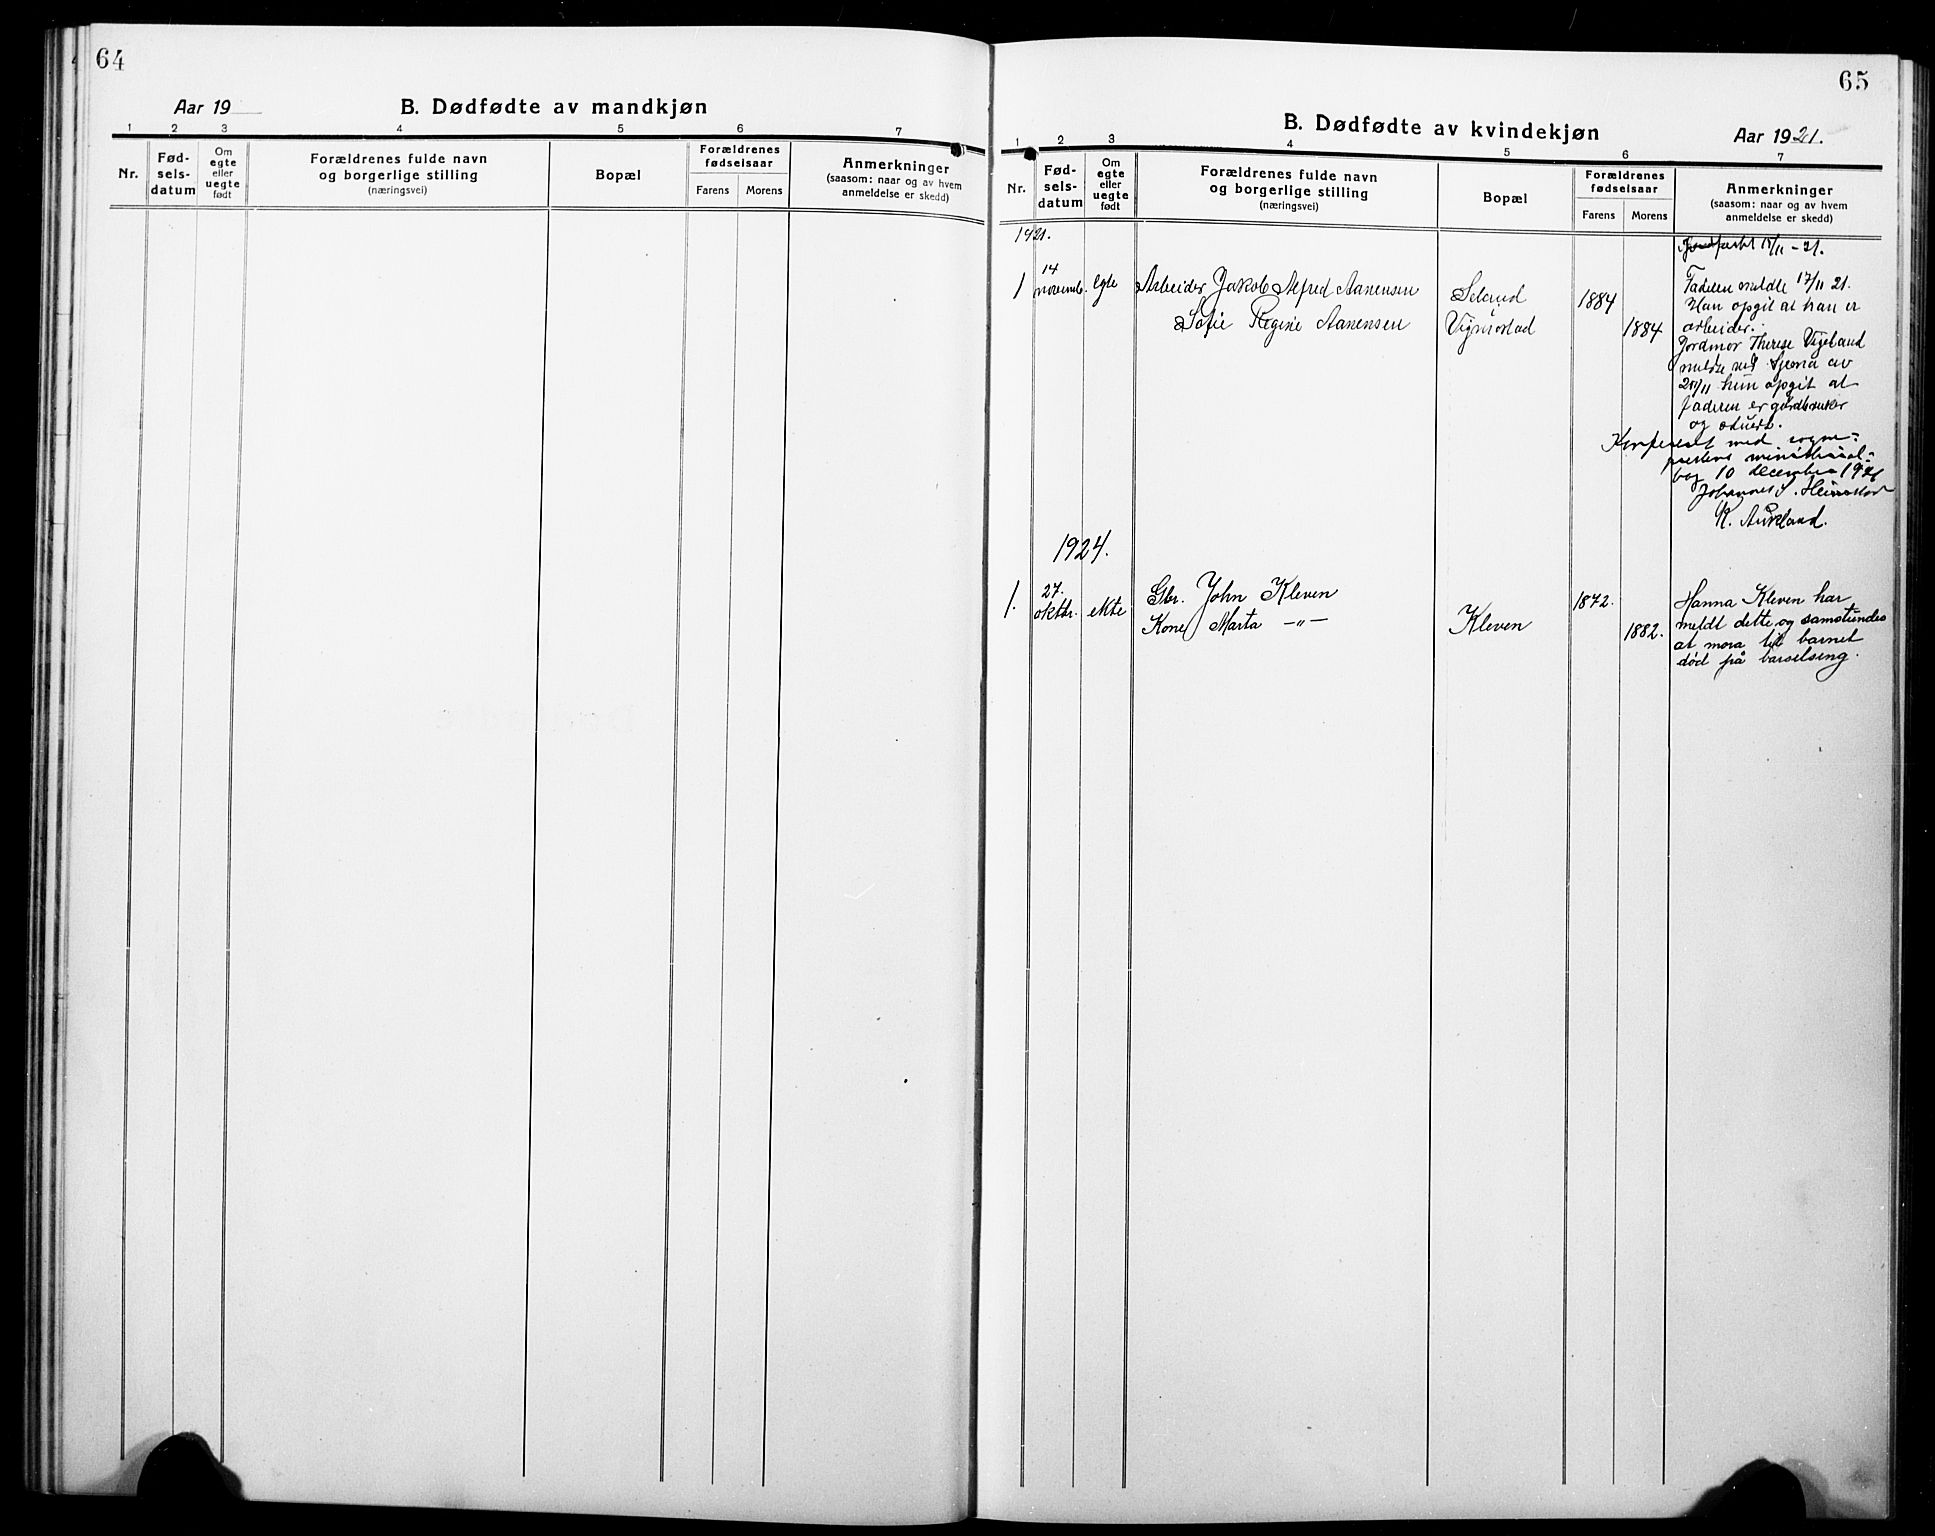 64
Aar 19
B. Dødfødte av mandkjøn
1 2 3 4 5 6 7
Nr.
Fød-
sels-
datum
Om
egte
eller
uegte
født
Forældrenes fulde navn
og borgerlige stilling
(næringsvei)
Bopæl
Forældrenes
fødselsaar
Farens Morens
Anmerkninger
(saasom: naar og av hvem
anmeldelse er skedd)
65
B. Dødfødte av kvindekjøn
Aar 1921.
1 2 3 4 5 6 7
Nr.
Fød-
sels-
datum
Om
egte
eller
uegte
født
Forældrenes fulde navn
og borgerlige stilling
(næringsvei)
Bopæl
Forældrenes
fødselsaar
Farens Morens
Anmerkninger
(saasom: naar og av hvem
anmeldelse er skedd)
1921.
1
14
novemb.
egte
Arbeider Jakob Alfred Aanensen
Sofie Regine Aanensen
Vigmostad
1884
1884
Faderen meldte 17/11 21.
Han opgit at han er
arbeider.
Jordmor Therese Vigeland
meldte ved av
hun opgit at
faderen er gårdbruker
og
Konferert med sogne-
prestens ministerial-
bog 10 december 1926
Johannes J.
K. Aukland.
1924.
1.
27.
oktbr.
ekte
Gbr. John Kleven
Kone Marta -"-
Kleven
1872.
1882.
Hanna Kleven har
meldt dette og samstundes
at mora til barnet
død på barselseng.